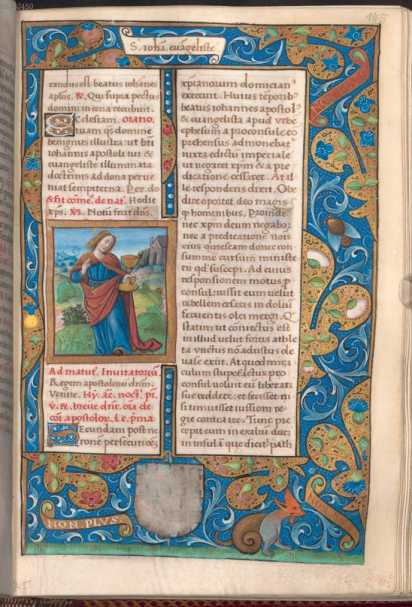 S. Ioha. euāgeliste
randus est beatus iohānes
apls̄. &. Qui supra pectus
domini in cena recubuit.
Ecclesiam. Oratio.
tuam qs̄ domine
benignus illustra ut bti
iohannis apostoli tui &
euāgeliste illuminata
doctrinis ad dona perue
niat sempiterna. Per. do
Hodie
Ad matut̄. Inuitatoriū
Regem apostolorum dn̄m.
Venite.
Secundam post ne
rone persecutiōēz
xp̄ianorum domician
exercuit. Huius tēporib
beatus iohannes apostol
& euangelista apud urbē
ephesum a proconsule cō
prehensus admonebat
iuxta edictū imperiale
ut negaret xp̄m & a pre
dicatione cessaret. At il
le respondens dixit. Obe
dire oportet deo magis
q̄ hominibus. Proinde
nec xp̄m deum negabo
nec a predicatione nois
eius quiescam donec con
summē cursum ministe
rii qd̄ suscepi. Ad cuius
responsionem motus p
consul: iussit eum uelut
rebellem
feruentis olei mergi. Q
statim ut coniectus est
in illud uelut fortis athle
ta unctus nō adustus de
uase exiit. At quod mira
culum stupefactus pro
consul uoluit eū libertati
sue reddere: et fecisset ni
si timuisset iussioni re
gie contraire. Tunc pre
cepit eum in exilium duci
in insulā que dicit path
NON PLVS